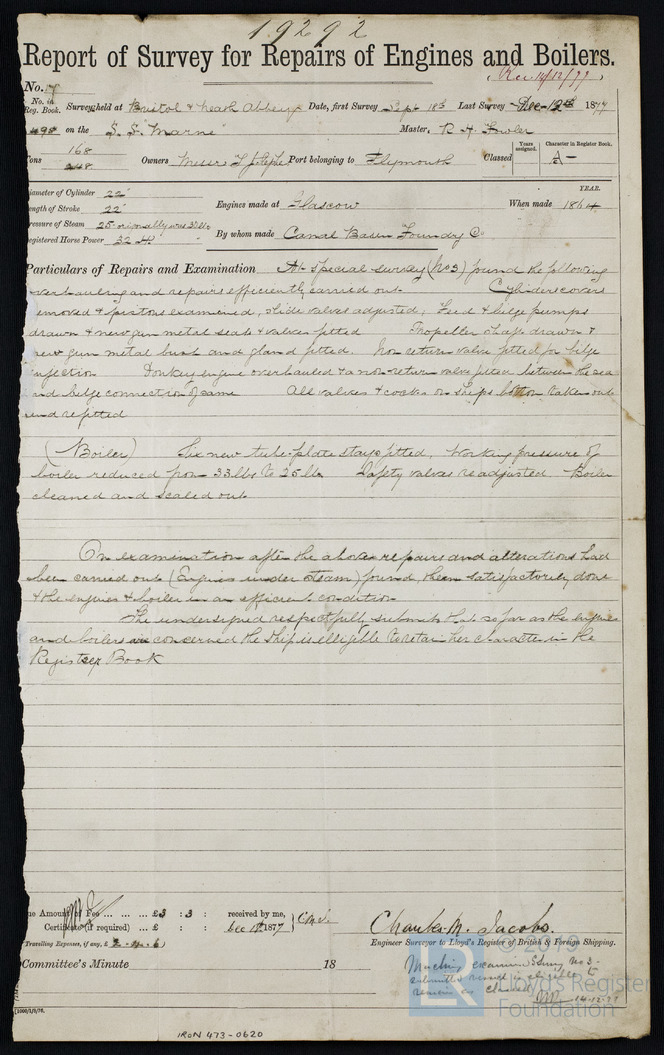 19292
Report of Survey for Repairs of Engines and Boilers.
(Rec 14/12/77)
No. 7
No. in Reg. Book. Survey held at Bristol & Neath Abbey Date, first Survey Sept 18th Last Survey Dec 12th 1877
on the S.S. Marne Master, R H Fowler
Tons 168 Owners Messrs Port belonging to Plymouth Classed Years assigned. Character in Register Book. A-
248
Diameter of Cylinder 22"
Length of Stroke 22" Engines made at Glascow When made YEAR. 1864
Pressure of Steam 25 - originally was 33 lbs
Registered Horse Power 32 H By whom made Canal Basin Foundry Co
Particulars of Repairs and Examination At special survey (No 3) found the following
overhauling and repairs efficiently carried out Cylinders covers
removed & pistons examined, slide valves adjusted, Feed & bilge pumps
drawn & new gun metal seats & valves fitted Propeller shaft drawn &
new gun metal bush and gland fitted. Non return valve fitted for bilge
injection Donkey engine overhauled & a non-return valve fitted between the sea
and bilge connection of same All valves & cocks on ships bottom taken out
and refitted
(Boiler) Six new tube-plate stays fitted, Working pressure of
boiler reduced from 33 lbs to 25 lbs Safety valves readjusted Boiler
cleaned and scaled out
On examination after the above repairs and alterations had
been carried out (Engines under steam) found them satisfactorily done
& the engines & boiler in an efficient condition
The undersigned respectfully submits that so far as the engines
and boilers are concerned the ship is elligible to retain her character in the
Register Book
The Amount of Fee ... ... ... £3 : 3 : received by me,
Certificate (if required) ... £ : : Dec 1877 } CMJ.
(Travelling Expenses, if any, £ 2-4-6)
Charles M. Jacobs.
Engineer Surveyor to Lloyd's Register of British & Foreign Shipping.
Committee's Minute 18
Machy examined Survey No 3-
submitted vessel is eligible to
remain as classed
14-12-77
© 2019
LR
Lloyd's Register
Foundation
IRON 473-0620